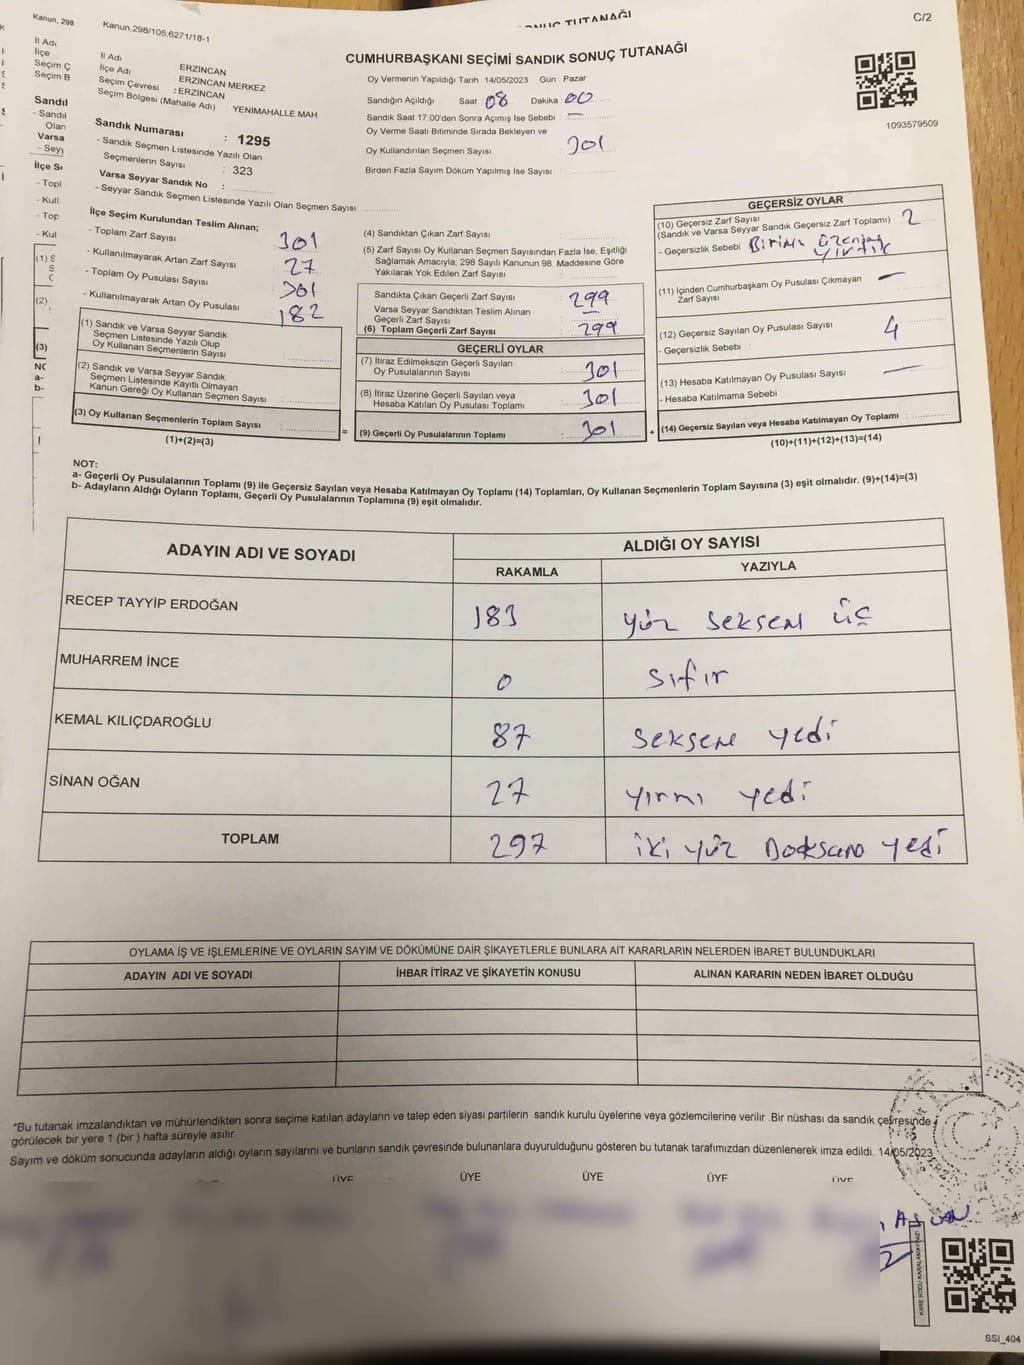 Kanun, 298
Kanun,298/105;6271/18-1
TUTANAĞI
C/2
CUMHURBAŞKANI SEÇİMİ SANDIK SONUÇ TUTANAĞI
İl Adı
İlçe
Seçim Ç
Seçim B
İl Adı : ERZİNCAN
İlçe Adı : ERZİNCAN MERKEZ
Seçim Çevresi : ERZİNCAN
Seçim Bölgesi (Mahalle Adı) : YENİMAHALLE MAH
Sandık Numarası : 1295
- Sandık Seçmen Listesinde Yazılı Olan
Seçmenlerin Sayısı : 323
Varsa Seyyar Sandık No :
- Seyyar Sandık Seçmen Listesinde Yazılı Olan Seçmen Sayısı:
Oy Vermenin Yapıldığı Tarih 14/05/2023 Gün : Pazar
Sandığın Açıldığı Saat 08 Dakika 00
Sandık Saat 17:00'den Sonra Açımış İse Sebebi : —
Oy Verme Saati Bitiminde Sırada Bekleyen ve
Oy Kullandırılan Seçmen Sayısı : 301
Birden Fazla Sayım Döküm Yapılmış İse Sayısı :
1093579509
İlçe Seçim Kurulundan Teslim Alınan;
- Toplam Zarf Sayısı : 301
- Kullanılmayarak Artan Zarf Sayısı : 27
- Toplam Oy Pusulası Sayısı : 301
- Kullanılmayarak Artan Oy Pusulası : 182
(1) Sandık ve Varsa Seyyar Sandık
Seçmen Listesinde Yazılı Olup
Oy Kullanan Seçmenlerin Sayısı :
(2) Sandık ve Varsa Seyyar Sandık
Seçmen Listesinde Kayıtlı Olmayan
Kanun Gereği Oy Kullanan Seçmen Sayısı :
(3) Oy Kullanan Seçmenlerin Toplam Sayısı :
(1)+(2)=(3)
(4) Sandıktan Çıkan Zarf Sayısı :
(5) Zarf Sayısı Oy Kullanan Seçmen Sayısından Fazla İse, Eşitliği
Sağlamak Amacıyla, 298 Sayılı Kanunun 98. Maddesine Göre
Yakılarak Yok Edilen Zarf Sayısı :
Sandıkta Çıkan Geçerli Zarf Sayısı : 299
Varsa Seyyar Sandıktan Teslim Alınan
Geçerli Zarf Sayısı : —
(6) Toplam Geçerli Zarf Sayısı : 299
GEÇERLİ OYLAR
(7) İtiraz Edilmeksizin Geçerli Sayılan
Oy Pusulalarının Sayısı : 301
(8) İtiraz Üzerine Geçerli Sayılan veya
Hesaba Katılan Oy Pusulası Toplamı : 301
= (9) Geçerli Oy Pusulalarının Toplamı : 301
GEÇERSİZ OYLAR
(10) Geçersiz Zarf Sayısı
(Sandık ve Varsa Seyyar Sandık Geçersiz Zarf Toplamı) : 2
- Geçersizlik Sebebi : Birinin üzerinde
yırtık
(11) İçinden Cumhurbaşkanı Oy Pusulası Çıkmayan
Zarf Sayısı : —
(12) Geçersiz Sayılan Oy Pusulası Sayısı : 4
- Geçersizlik Sebebi :
(13) Hesaba Katılmayan Oy Pusulası Sayısı : —
- Hesaba Katılmama Sebebi :
+ (14) Geçersiz Sayılan veya Hesaba Katılmayan Oy Toplamı :
(10)+(11)+(12)+(13)=(14)
NOT:
a- Geçerli Oy Pusulalarının Toplamı (9) ile Geçersiz Sayılan veya Hesaba Katılmayan Oy Toplamı (14) Toplamları, Oy Kullanan Seçmenlerin Toplam Sayısına (3) eşit olmalıdır. (9)+(14)=(3)
b- Adayların Aldığı Oyların Toplamı, Geçerli Oy Pusulalarının Toplamına (9) eşit olmalıdır.
ADAYIN ADI VE SOYADI ALDIĞI OY SAYISI
RAKAMLA YAZIYLA
RECEP TAYYİP ERDOĞAN 183 yüz seksen üç
MUHARREM İNCE 0 sıfır
KEMAL KILIÇDAROĞLU 87 seksen yedi
SİNAN OĞAN 27 yirmi yedi
TOPLAM 297 iki yüz Doksan yedi
OYLAMA İŞ VE İŞLEMLERİNE VE OYLARIN SAYIM VE DÖKÜMÜNE DAİR ŞİKAYETLERLE BUNLARA AİT KARARLARIN NELERDEN İBARET BULUNDUKLARI
ADAYIN ADI VE SOYADI İHBAR İTİRAZ VE ŞİKAYETİN KONUSU ALINAN KARARIN NEDEN İBARET OLDUĞU
*Bu tutanak imzalandıktan ve mühürlendikten sonra seçime katılan adayların ve talep eden siyasi partilerin sandık kurulu üyelerine veya gözlemcilerine verilir .Bir nüshası da sandık çevresinde
görülecek bir yere 1 (bir ) hafta süreyle asılır.
Sayım ve döküm sonucunda adayların aldığı oyların sayılarını ve bunların sandık çevresinde bulunanlara duyurulduğunu gösteren bu tutanak tarafımızdan düzenlenerek imza edildi. 14/05/2023
ÜYE ÜYE ÜYE ÜYE ÜYE
KARE KODU KARALAMAYINIZ!
SSI_404